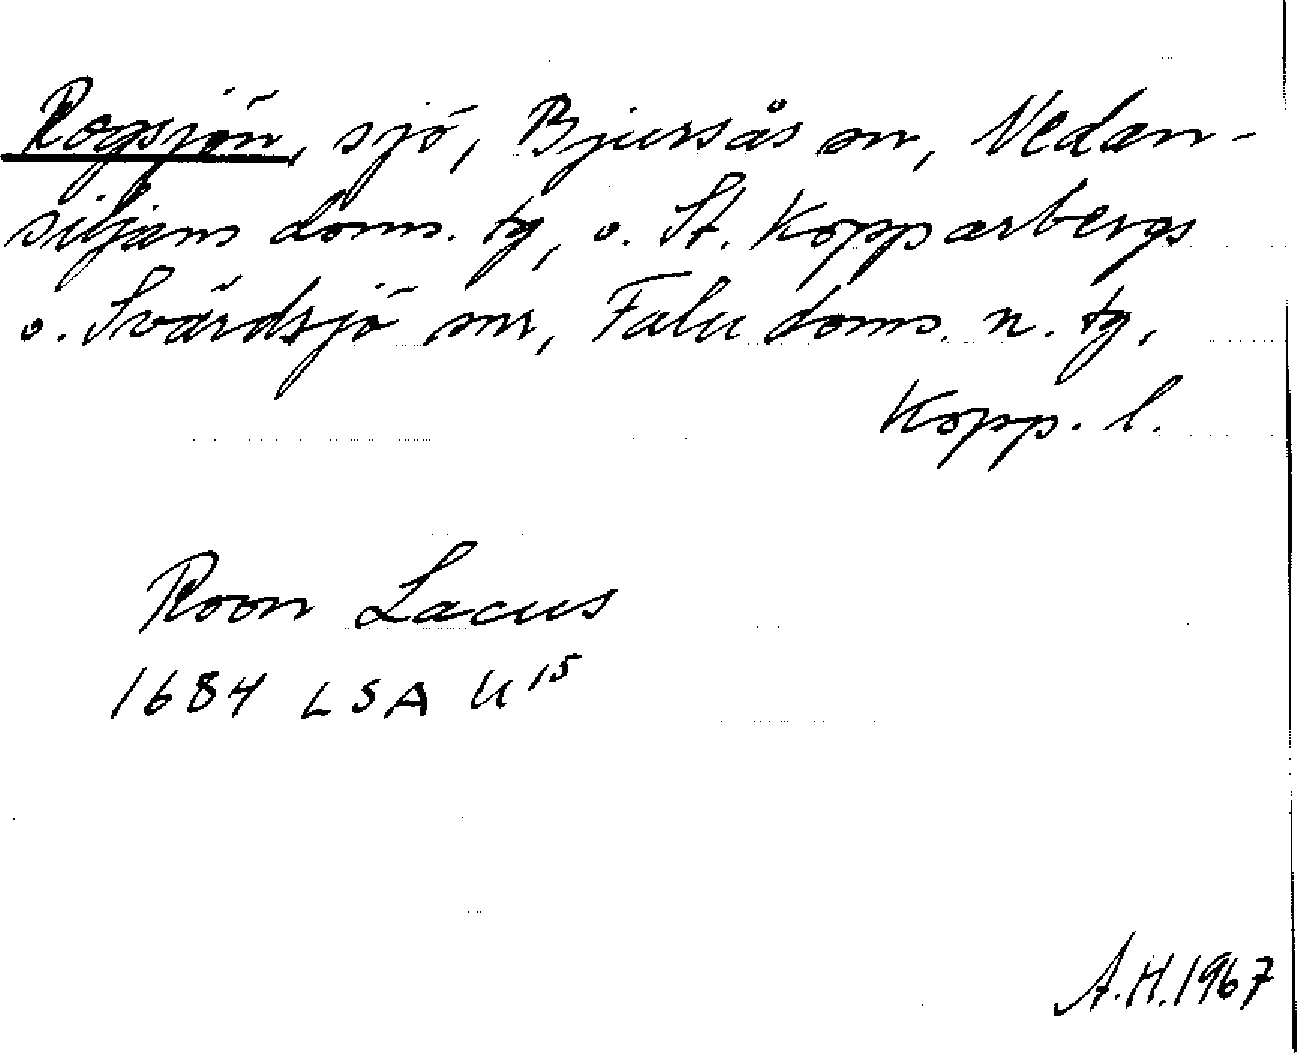 Rogsjön, sjö, Bjursås sn, Nedan-
siljans doms. tg, o. St. Kopparbergs
o. Svärdsjö snr, Falu doms. n. tg,
Kopp. l.
Roon Lacus
1684 LSA U 15
A.H. 1967